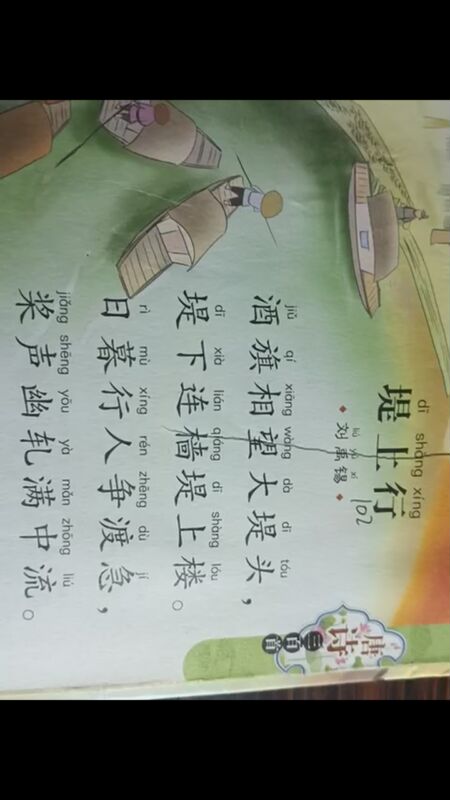 dī shàng xíng
堤上行
102
liú yǔ xī
刘禹锡
jiǔ qí xiāng wàng dà dī tóu
酒旗相望大堤头，
dī xià lián qiáng dī shàng lóu
堤下连樯堤上楼。
rì mù xíng rén zhēng dù jí
日暮行人争渡急，
jiǎng shēng yōu yà mǎn zhōng liú
桨声幽轧满中流。
唐诗
三百首